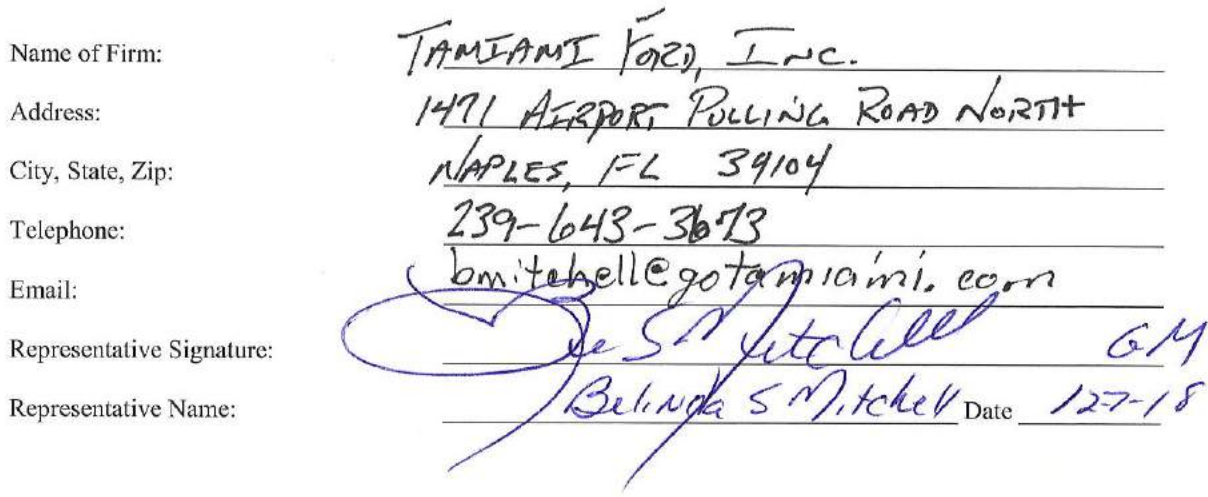 Name of Firm: TAMIAMI FORD, INC.
Address: 1471 AIRPORT PULLING ROAD NORTH
City, State, Zip: NAPLES, FL 34104
Telephone: 239-643-3673
Email: bmitchell@gotamiami.com
Representative Signature: Be S Mitchell GM
Representative Name: Belinda S Mitchell Date 12-7-18